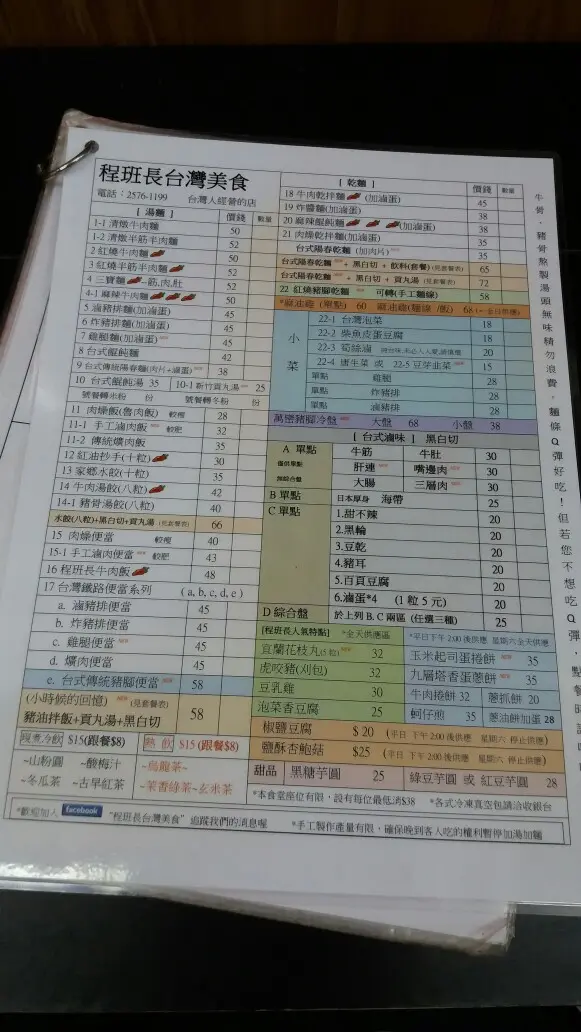 程班長台灣美食
電話：2576-1199 台灣人經營的店
[ 湯麵 ] 價錢 數量
1-1 清燉牛肉麵 50
1-2 清燉半筋半肉麵 52
2 紅燒牛肉麵 50
3 紅燒半筋半肉麵 52
4 三寶麵 -筋,肉,肚 52
4-1 麻辣牛肉麵 50
5 滷豬排麵(加滷蛋) 45
6 炸豬排麵(加滷蛋) 45
7 雞腿麵(加滷蛋) 45
8 台式餛飩麵 42
9 台式傳統陽春麵(肉片+滷蛋) 38
10 台式餛飩湯 35 10-1 新竹貢丸湯 25
號餐轉米粉 份 號餐轉冬粉 份
11 肉燥飯(魯肉飯) 較瘦 28
11-1 手工滷肉飯 較肥 32
11-2 傳統爌肉飯 35
12 紅油抄手(十粒) 30
13 家鄉水餃(十粒) 35
14 牛肉湯餃(八粒) 42
14-1 豬骨湯餃(八粒) 40
水餃(八粒)+黑白切+貢丸湯 (見套餐表) 66
15 肉燥便當 較瘦 40
15-1 手工滷肉便當 較肥 43
16 程班長牛肉飯 48
17 台灣鐵路便當系列 ( a, b, c, d, e )
a. 滷豬排便當 45
b. 炸豬排便當 45
c. 雞腿便當 45
d. 爌肉便當 45
e. 台式傳統豬腳便當 58
(小時候的回憶) (見套餐表)
豬油拌飯+貢丸湯+黑白切 58
現煮冷飲 $15(跟餐$8)
~山粉圓 ~酸梅汁
~冬瓜茶 ~古早紅茶
熱 飲 $15 (跟餐$8)
~烏龍茶~
~茉香綠茶~玄米茶
[ 乾麵 ] 價錢 數量
18 牛肉乾拌麵 (加滷蛋) 45
19 炸醬麵(加滷蛋) 38
20 麻辣餛飩麵 (加滷蛋) 38
21 肉燥乾拌麵(加滷蛋) 35
台式陽春乾麵 (加肉片) 35
台式陽春乾麵 + 黑白切 + 飲料(套餐) (見套餐表) 65
台式陽春乾麵 + 黑白切 + 貢丸湯 (見套餐表) 72
22 紅燒豬腳乾麵 可轉(手工麵線) 58
*麻油雞 (單點) 60 麻油雞(麵線 /飯) 68
小菜
22-1 台灣泡菜 18
22-2 柴魚皮蛋豆腐 18
22-3 筍絲滷 20
22-4 唐生菜 或 22-5 豆芽韭菜 15
單點 雞腿 28
單點 炸豬排 28
單點 滷豬排 28
萬密豬腳冷盤 大盤 68 小盤 38
[ 台式滷味 ] 黑白切
A 單點 牛筋 牛肚 30
肝連 嘴邊肉 30
大腸 三層肉 30
B 單點 日本厚身 海帶 25
C 單點 1.甜不辣 20
2.黑輪 20
3.豆乾 20
4.豬耳 20
5.百頁豆腐 20
6.滷蛋*4 (1粒 5 元) 20
D 綜合盤 於上列 B. C 兩區 (任選三種) 25
[程班長人氣特點] *全天供應區
宜蘭花枝丸 32
虎咬豬(刈包) 32
豆乳雞 30
泡菜香豆腐 25
*平日下午 2:00 後供應 星期六全天供應
玉米起司蛋捲餅 35
九層塔香蛋蔥餅 35
牛肉捲餅 32 蔥抓餅 20
蚵仔煎 35 蔥油餅加蛋 28
椒鹽豆腐 $ 20 (平日 下午 2:00 後供應 星期六 停止供應)
鹽酥杏鮑菇 $25 (平日 下午 2:00 後供應 星期六 停止供應)
甜品 黑糖芋圓 25 綠豆芋圓 或 紅豆芋圓 28
*本食堂座位有限，設有每位最低消$38 *各式冷凍真空包請洽收銀台
*歡迎加入 facebook "程班長台灣美食" 追蹤我們的消息喔 *手工製作產量有限，確保晚到客人吃的權利暫停加湯加麵
牛骨，豬骨熬製湯頭無味精勿浪費，麵條Q彈好吃！但若您不想吃Q彈，點餐時